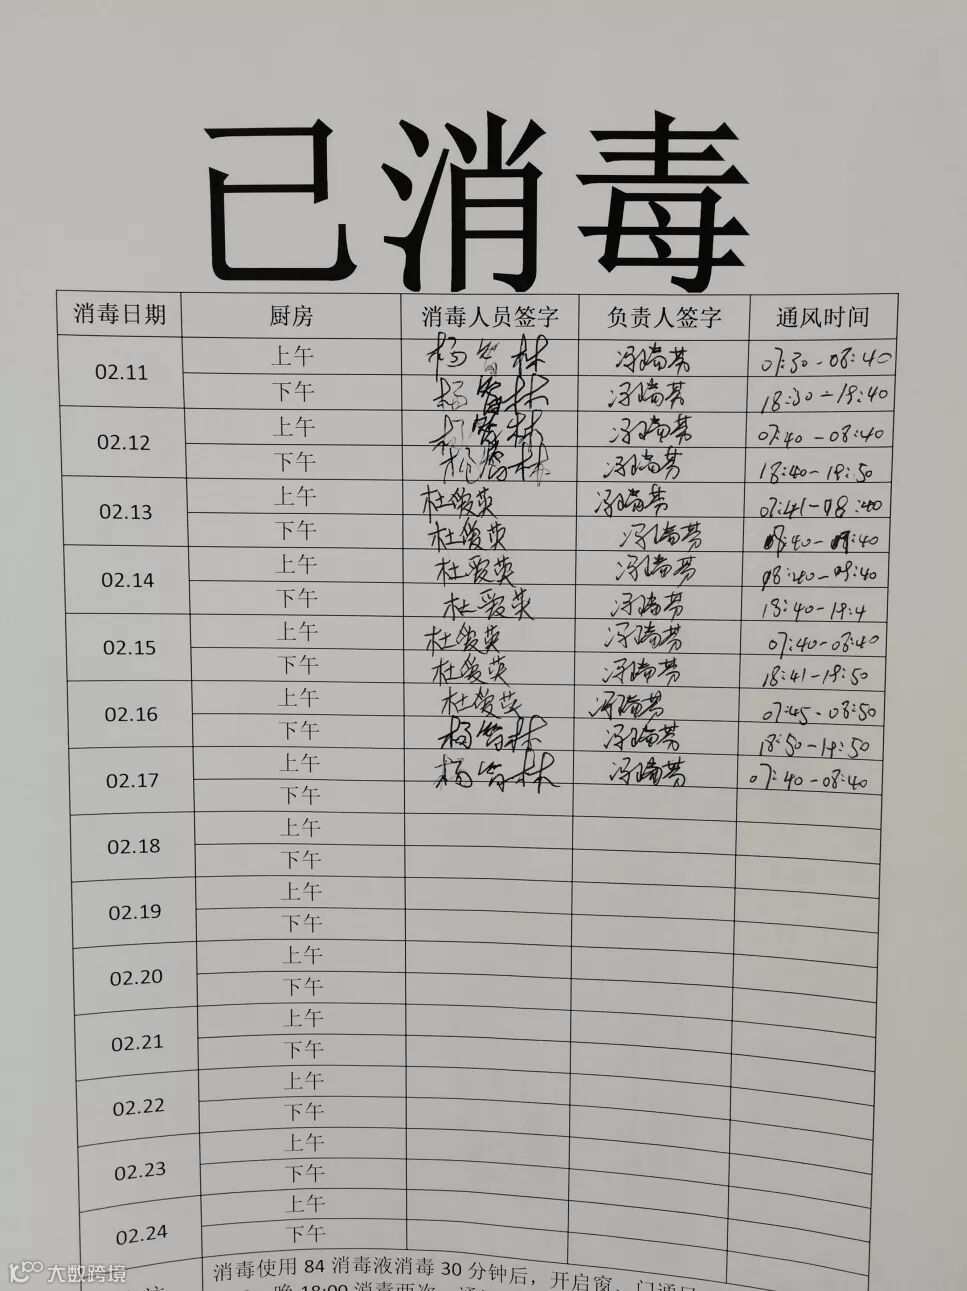 已消毒
消毒日期 厨房 消毒人员签字 负责人签字 通风时间
02.11 上午 杨智林 冯瑞芳 07:30-08:40
下午 杨智林 冯瑞芳 18:30-19:40
02.12 上午 杨智林 冯瑞芳 07:40-08:40
下午 杨智林 冯瑞芳 18:40-19:50
02.13 上午 杜爱英 冯瑞芳 07:41-08:40
下午 杜爱英 冯瑞芳
02.14 上午 杜爱英 冯瑞芳 08:40-09:40
下午 杜爱英 冯瑞芳 18:40-19:4
02.15 上午 杜爱英 冯瑞芳 07:40-08:40
下午 杜爱英 冯瑞芳 18:41-19:50
02.16 上午 杜爱英 冯瑞芳 07:45-08:50
下午 杨智林 冯瑞芳 18:50-19:50
02.17 上午 杨智林 冯瑞芳 07:40-08:40
下午
02.18 上午
下午
02.19 上午
下午
02.20 上午
下午
02.21 上午
下午
02.22 上午
下午
02.23 上午
下午
02.24 上午
下午
消毒使用 84 消毒液消毒 30 分钟后，开启窗、门通风
晚 18:00 消毒两次
大数跨境